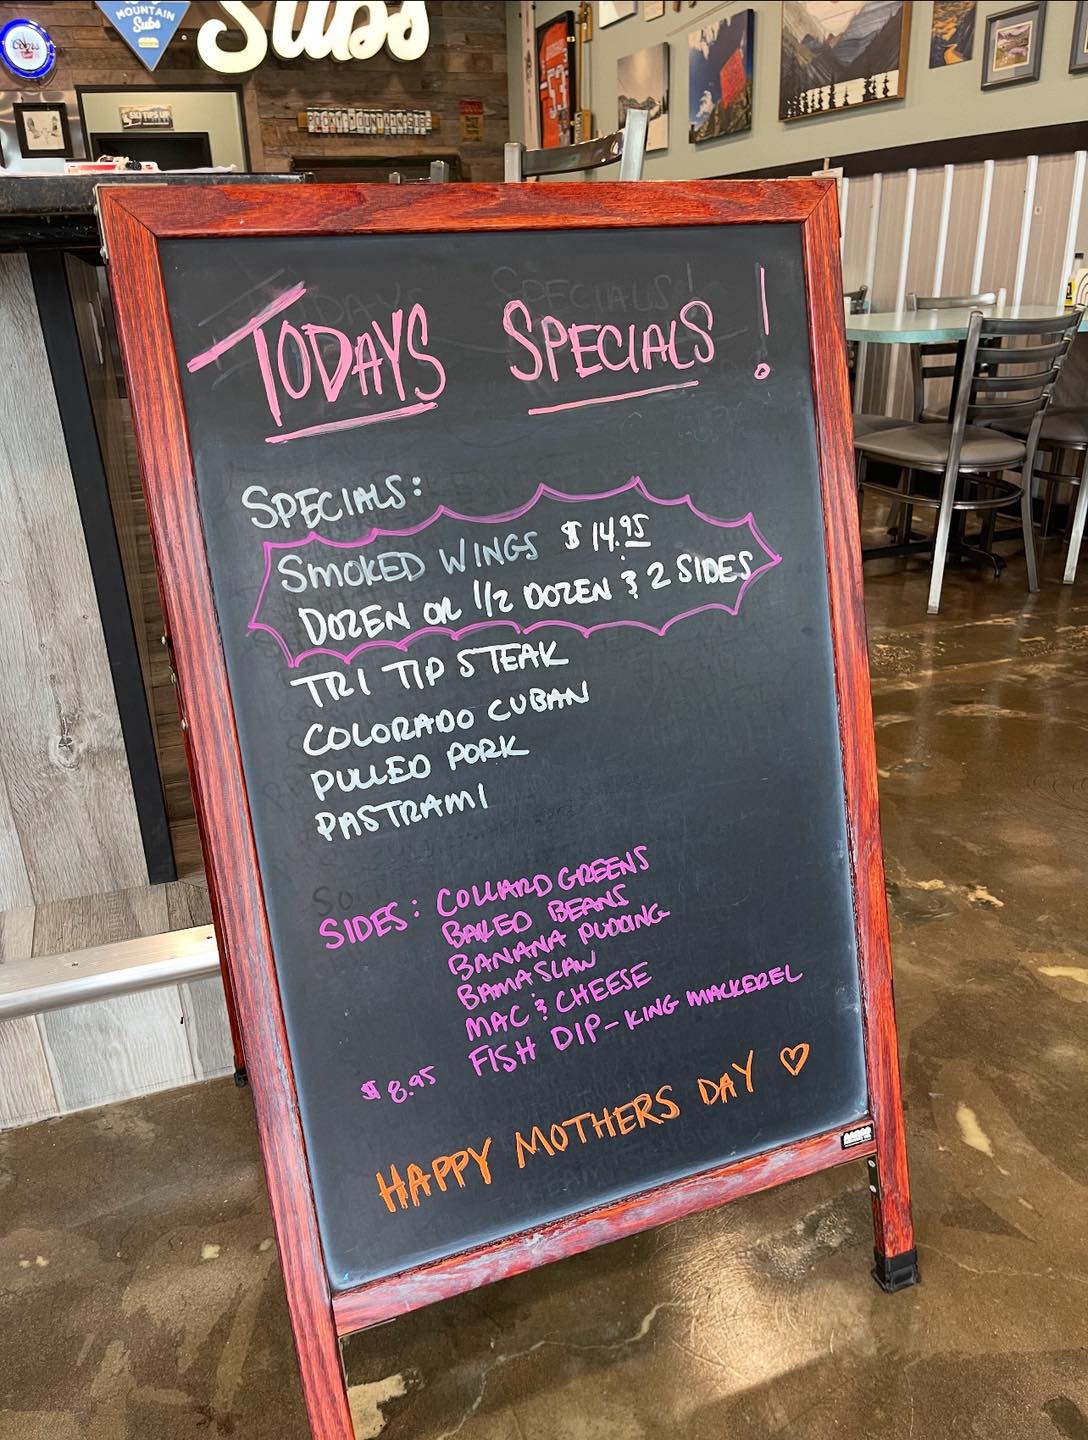 MOUNTAIN
Subs
Subs
Coors
TODAYS SPECIALS!
SPECIALS:
SMOKED WINGS $14.95
DOZEN OR 1/2 DOZEN & 2 SIDES
TRI TIP STEAK
COLORADO CUBAN
PULLED PORK
PASTRAMI
SIDES: COLLARD GREENS
BAKED BEANS
BANANA PUDDING
BAMA SLAW
MAC & CHEESE
FISH DIP - KING MACKEREL
$8.95
HAPPY MOTHERS DAY ♡